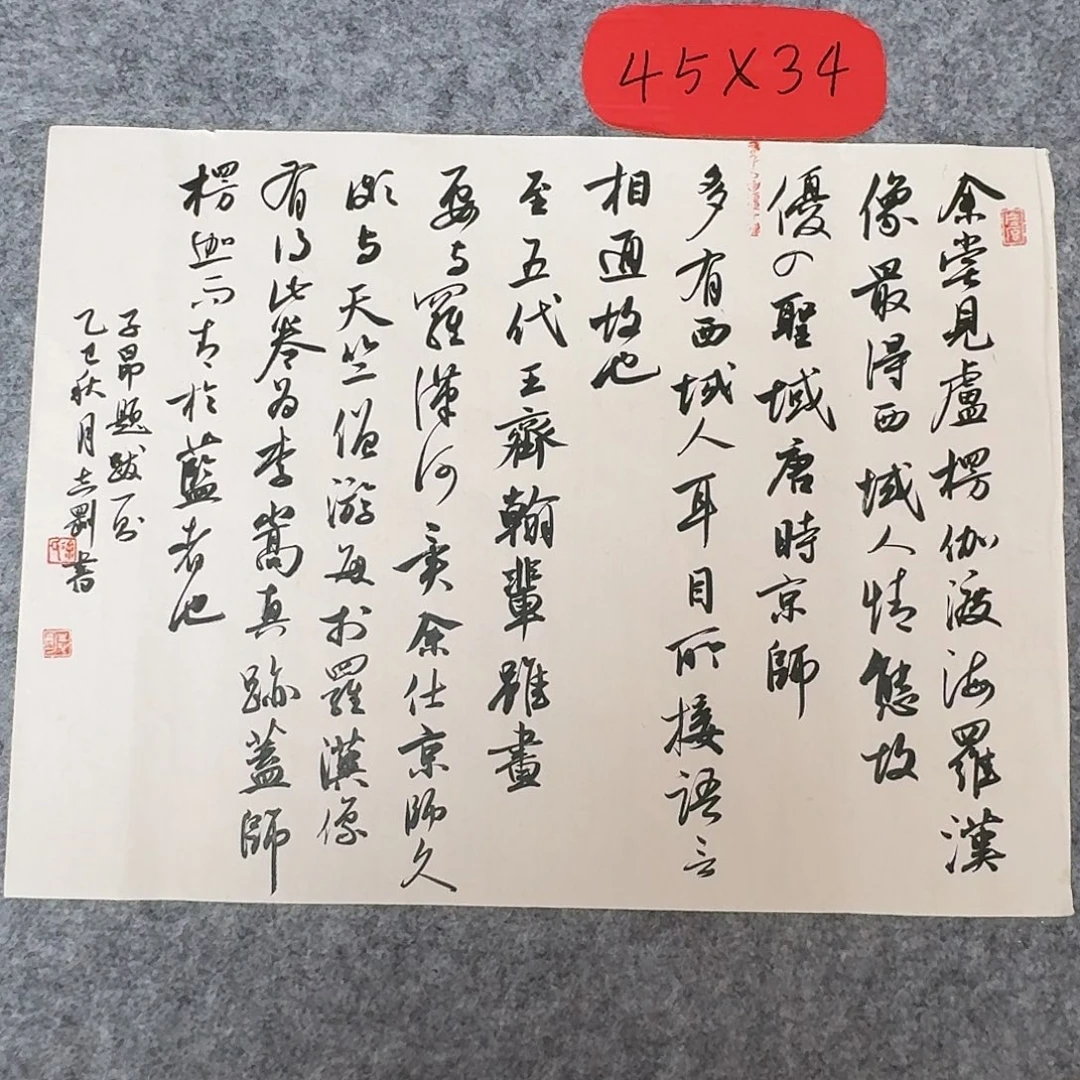 45X34
余嘗見盧楞伽渡海羅漢
像最得西域人情態故
優入聖域唐時京師
多有西域人耳目所接語言
相通故也
至五代王齊翰輩雖畫
要与羅漢何異余仕京師久
頗与天竺僧游每於羅漢像
有得此卷為李嵩真跡蓋師
楞迦而青於藍者也
子昂題跋一則
乙巳秋月志剛書